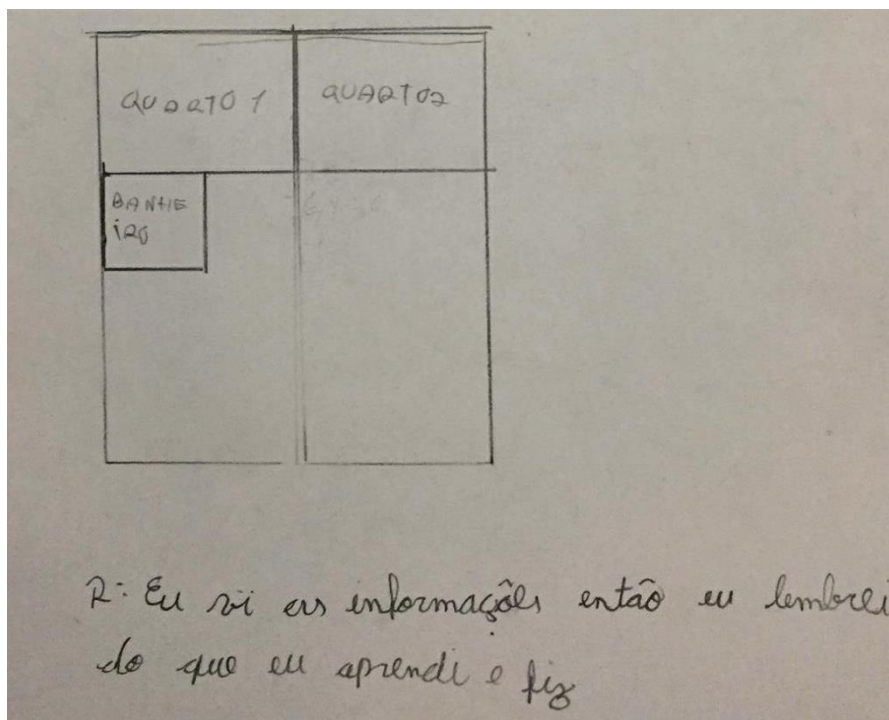 QUARTO 1
QUARTO2
BANHE
iRO
R: Eu vi as informações então eu lembrei
do que eu aprendi e fiz